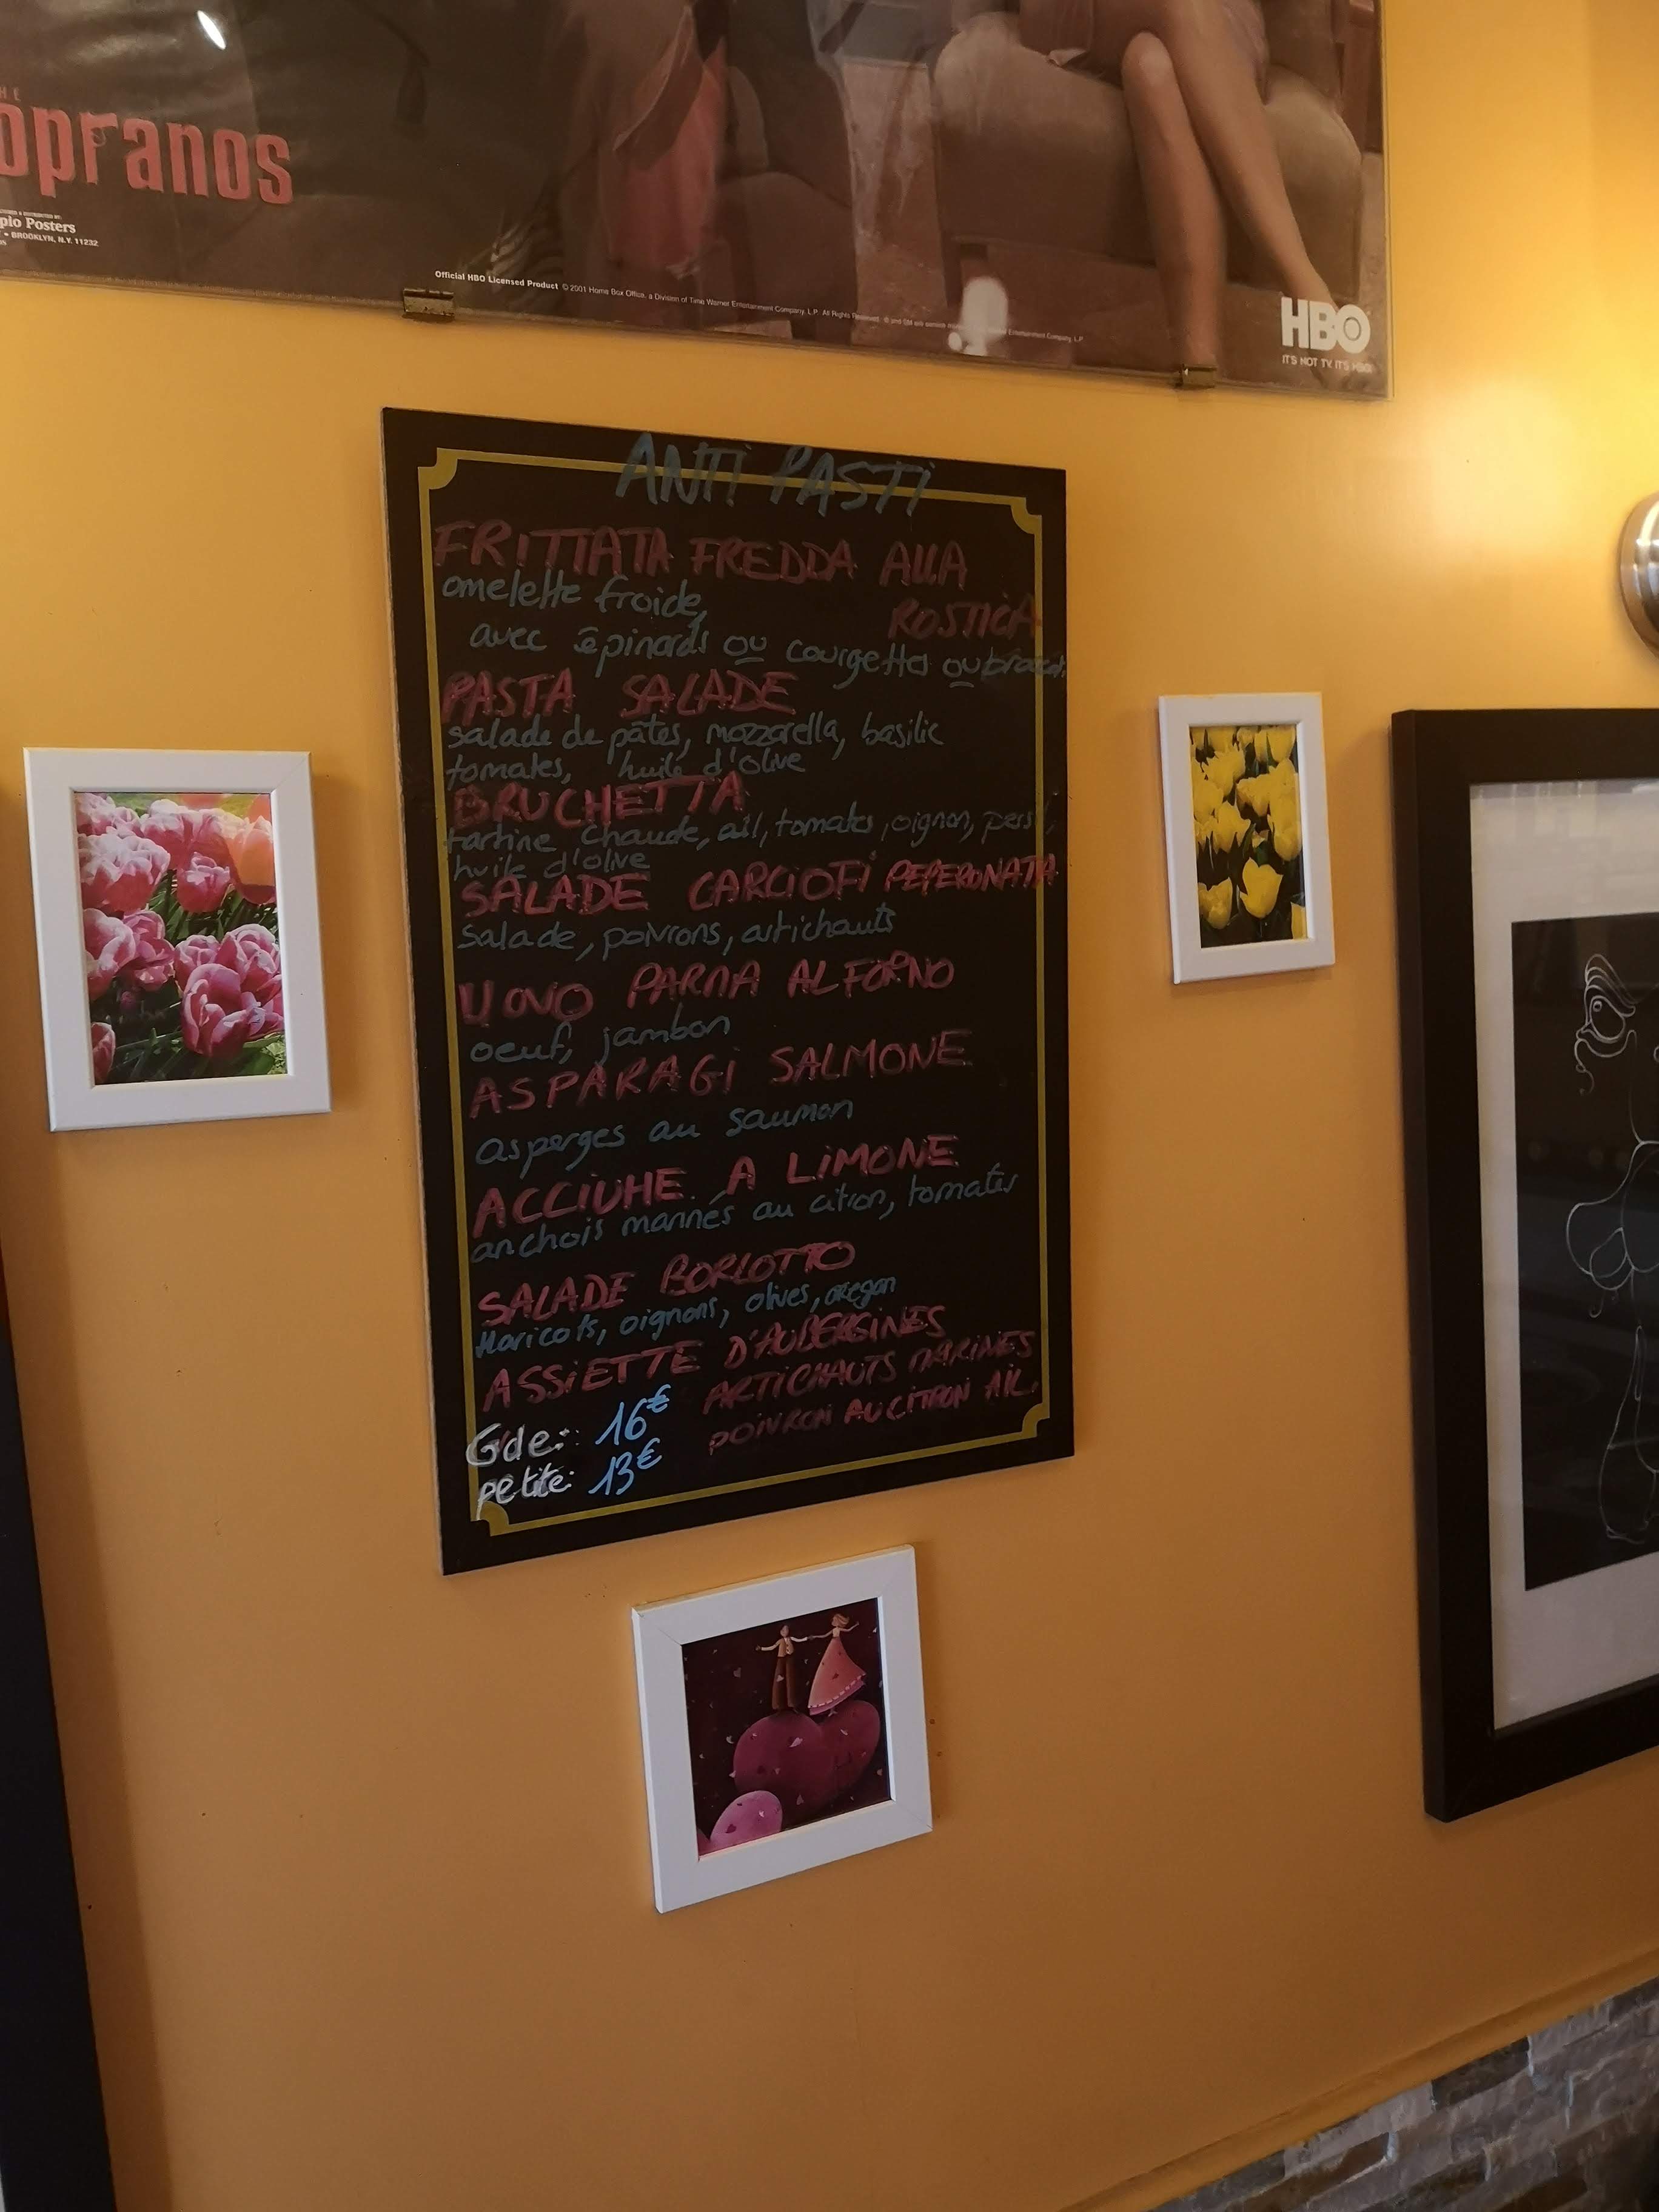 THE
opranos
plo Posters
BROOKLYN, N.Y. 11232
Official HBO Licensed Product © 2001 Home Box Office, a Division of Time Warner Entertainment Company, L.P. All Rights Reserved.
Entertainment Company, L.P.
HBO
IT'S NOT TV. IT'S HBO.
ANTi PASTi
FRITTATA FREDDA ALLA
ROSTICA
omelette froide,
avec épinards ou courgettes ou
PASTA SALADE
salade de pâtes, mozzarella, basilic
tomates, huile d'olive
BRUCHETTA
tartine chaude, ail, tomates, oignon, persil,
huile d'olive
SALADE CARCiOFi PEPERONATA
salade, poivrons, artichauts
UOVO PARMA AL FORNO
oeuf, jambon
ASPARAGi SALMONE
asperges au saumon
ACCIUHE A LiMONE
anchois marinés au citron, tomates
SALADE BORLOTTO
Haricots, oignons, olives, oregan
ASSiETTE D'AUBERGINES
ARTICHAUTS MARINES
POIVRON AU CITRON AIL.
Gde: 16€
petite: 13€